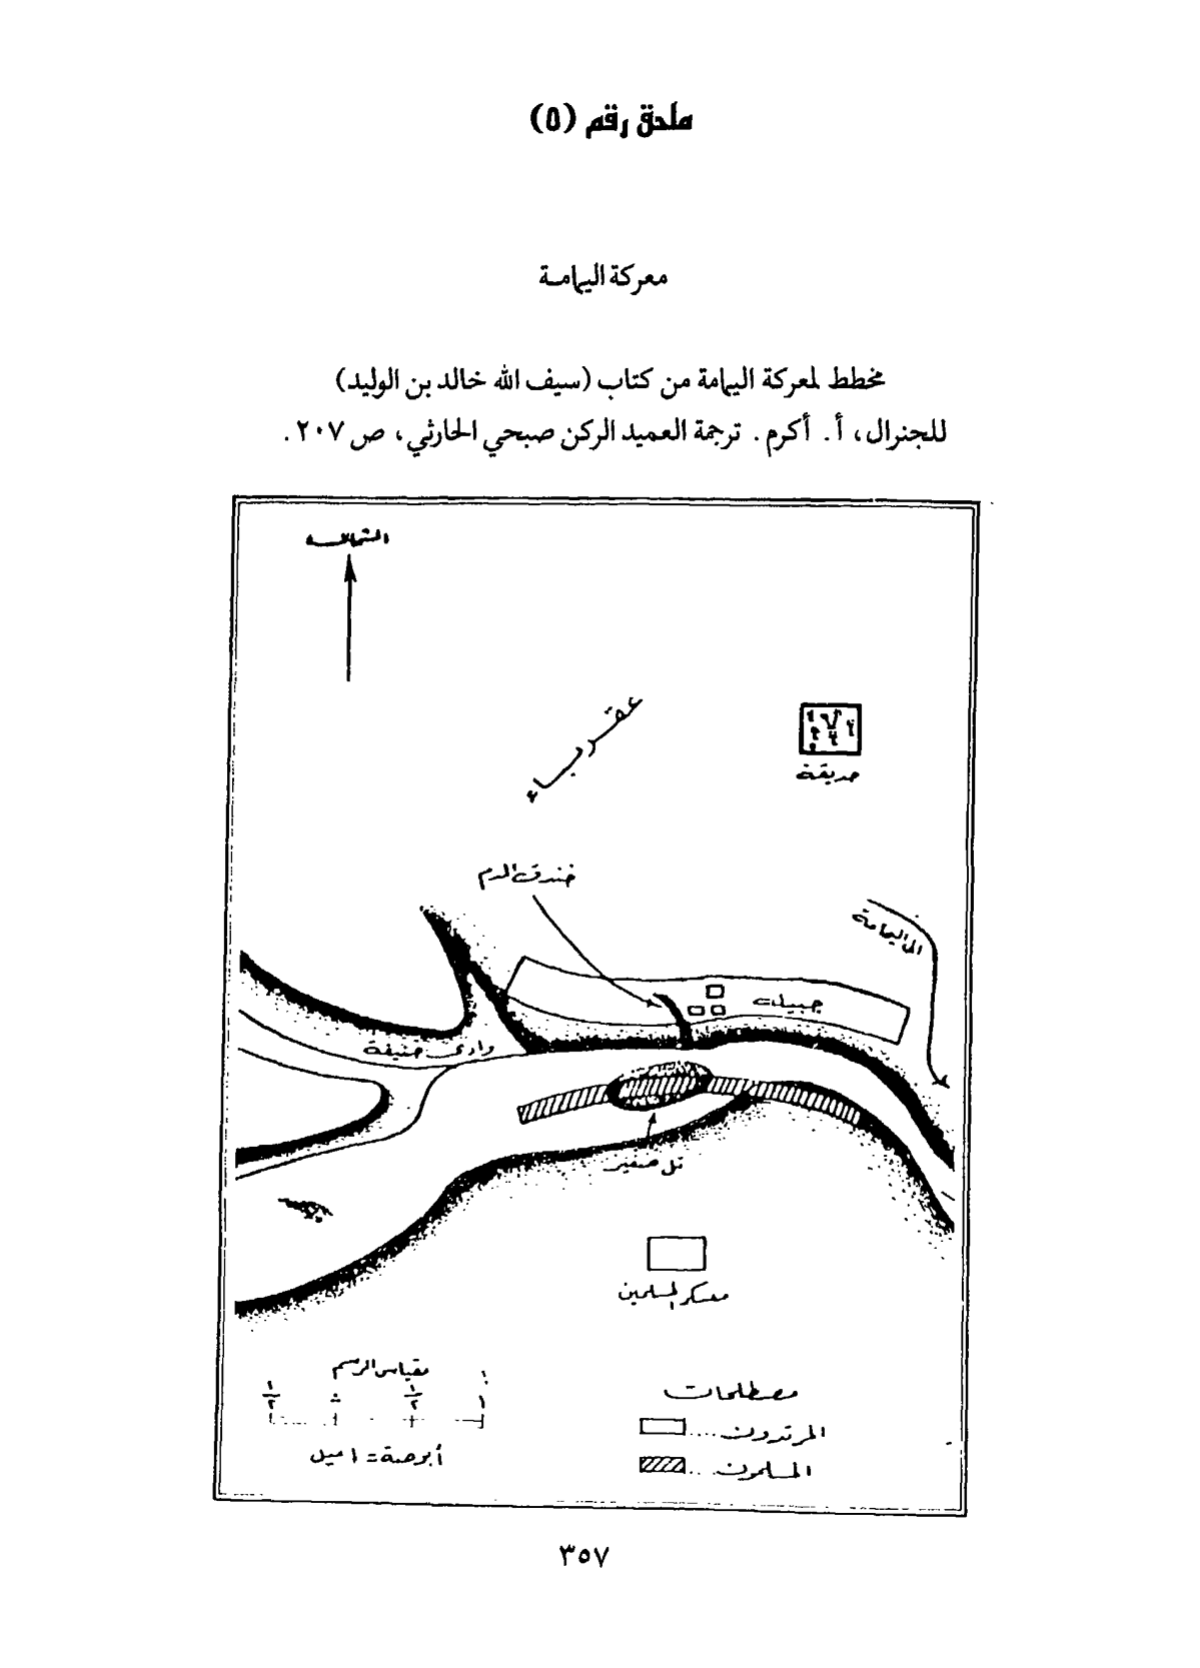 ملحق رقم (٥)
معركة اليمامة
مخطط لمعركة اليمامة من كتاب (سيف الله خالد بن الوليد)
للجنرال، أ. أكرم. ترجمة العميد الركن صبحي الحارثي، ص ٢٠٧.
الشمال
عقرباء
حديقة
خندق الدم
الى اليمامة
جبيلة
وادي حنيفة
تل صغير
معسكر المسلمين
مقياس الرسم
١/٢ ٠ ١/٢ ١
١ بوصة = ١ ميل
مصطلحات
المرتدون....
المسلمون....
٣٥٧